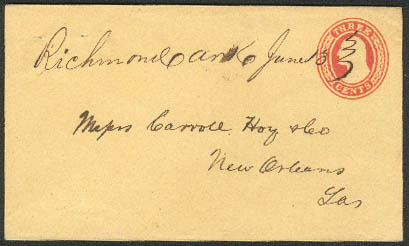 Richmond Ark June 13
THREE
CENTS
Messrs Carroll, Hoy & Co
New Orleans
Las